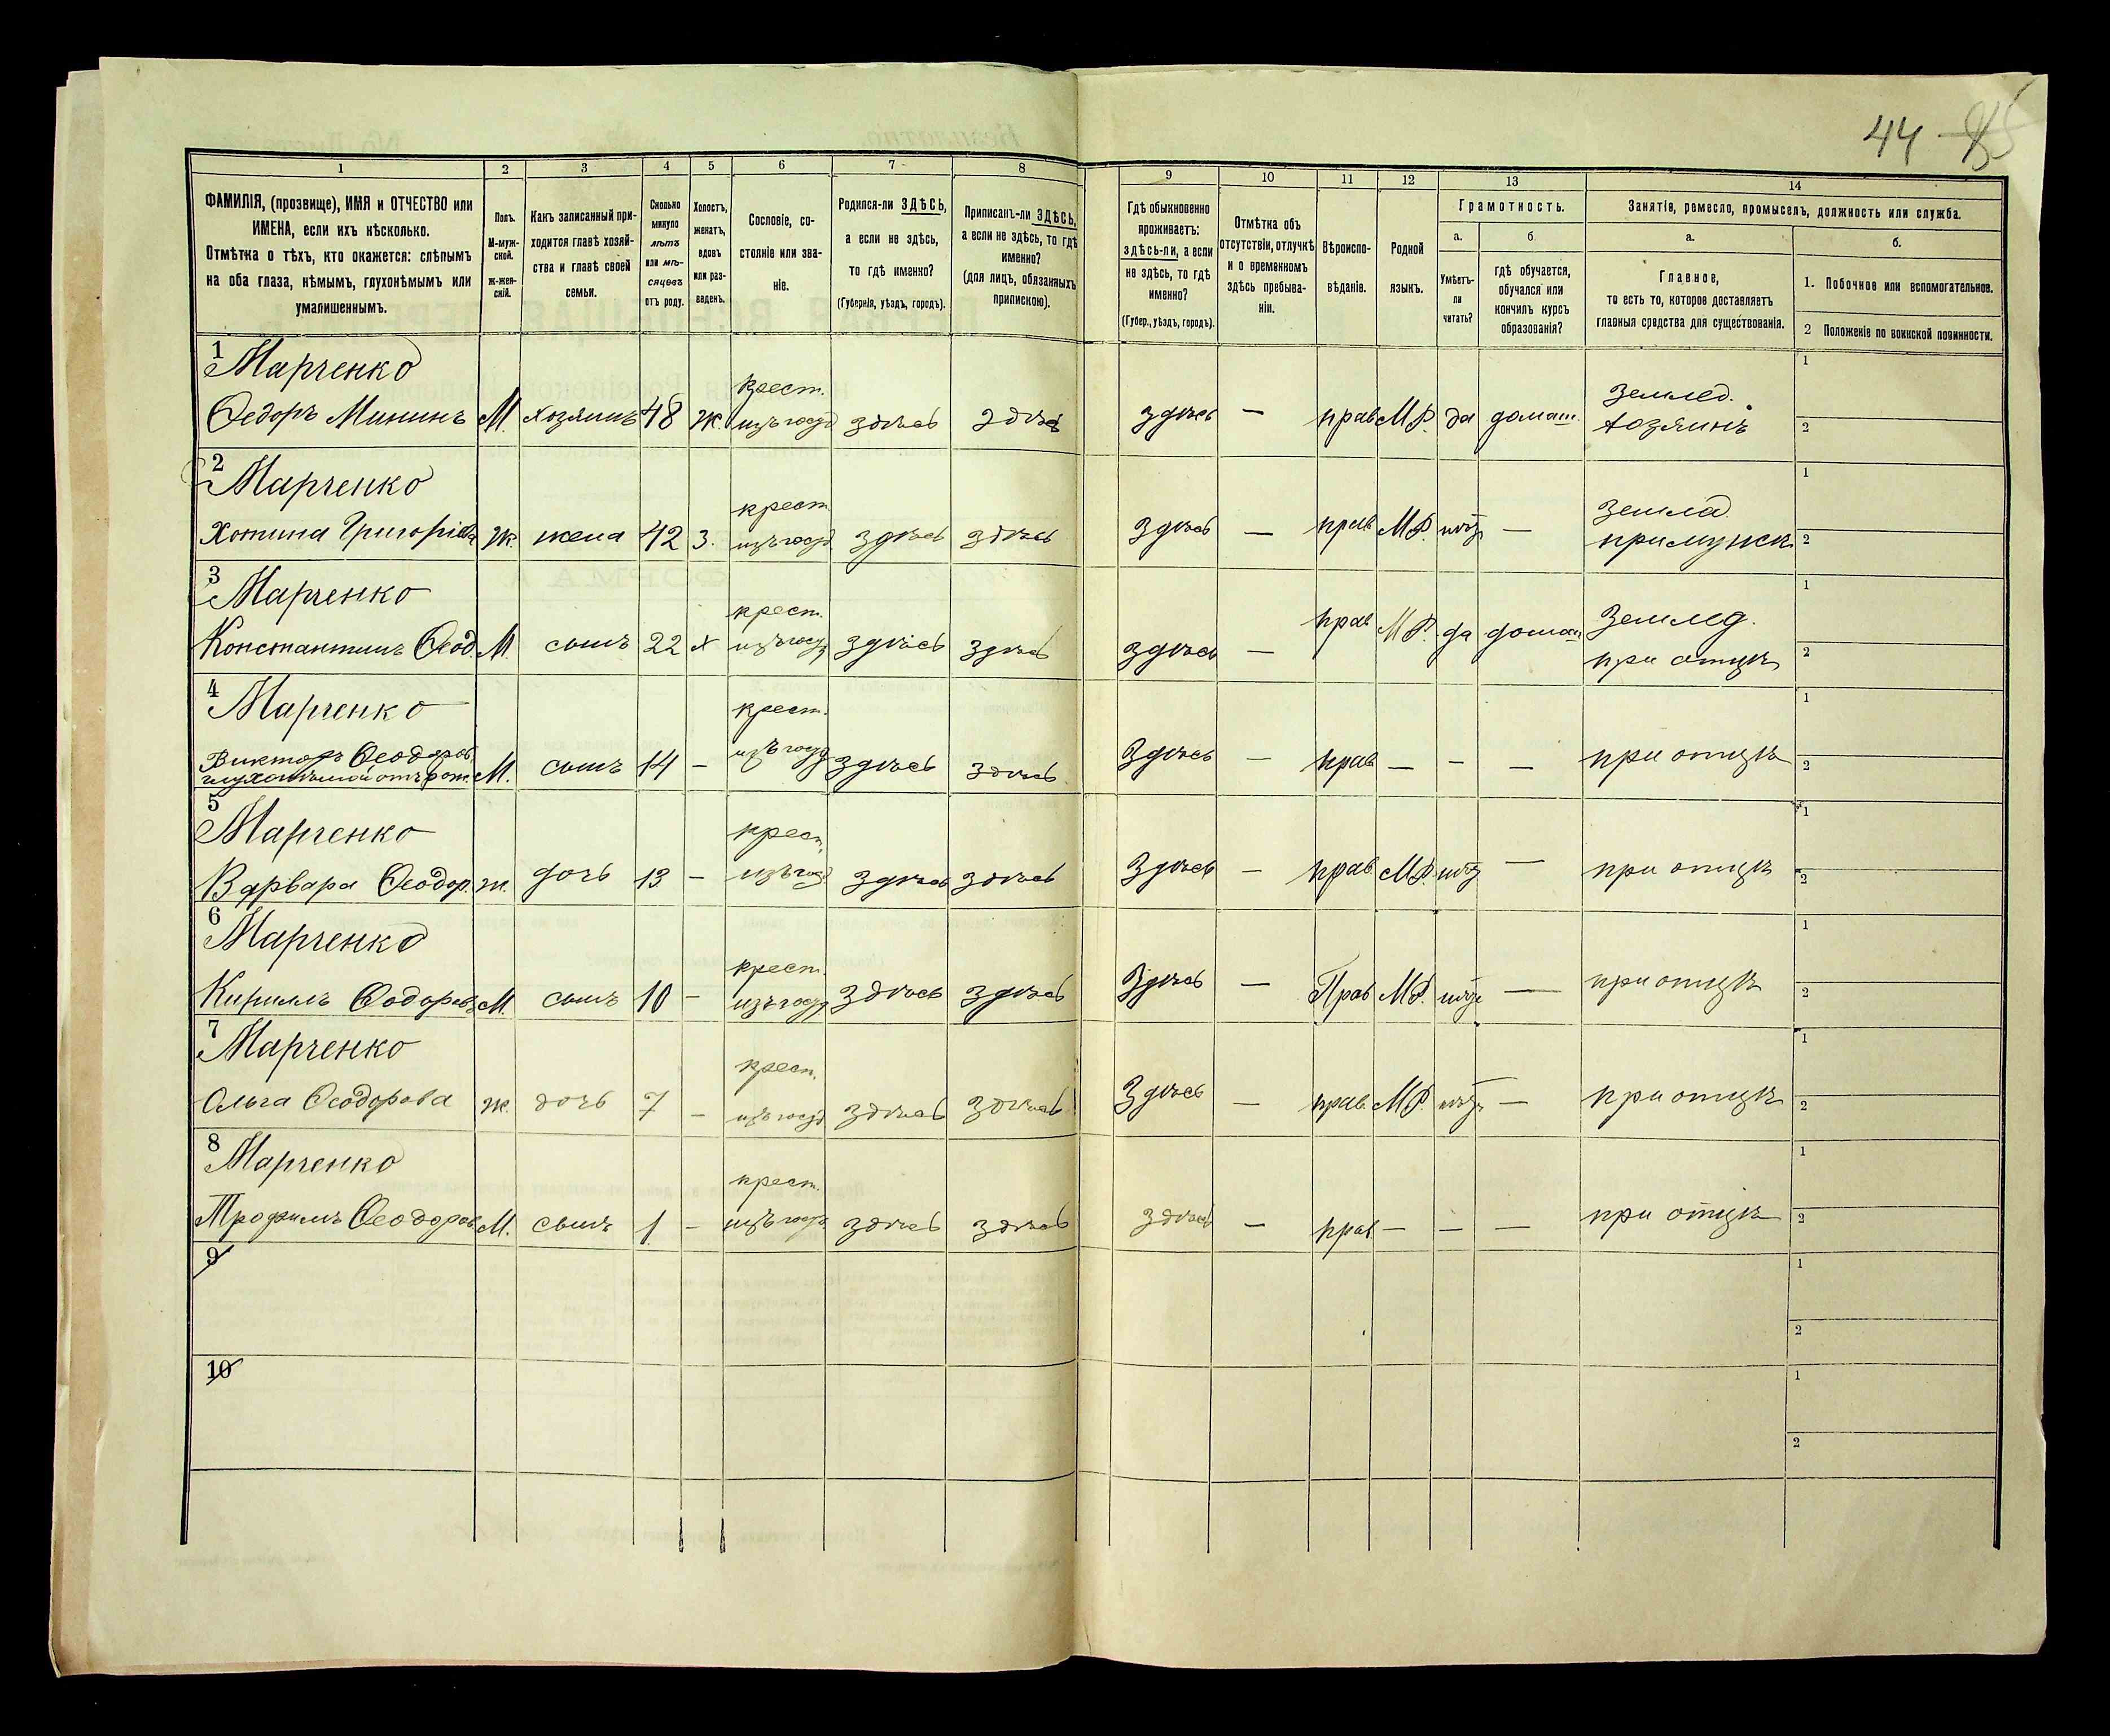 44 85
1 2 3 4 5 6 7 8 9 10 11 12 13 14
ФАМИЛІЯ, (прозвище), ИМЯ и ОТЧЕСТВО или
ИМЕНА, если ихъ нѣсколько.
Отмѣтка о тѣхъ, кто окажется: слѣпымъ
на оба глаза, нѣмымъ, глухонѣмымъ или
умалишеннымъ.
Полъ.
М-муж-
ской.
Ж-жен-
скій.
Какъ записанный при-
ходится главѣ хозяй-
ства и главѣ своей
семьи.
Сколько
минуло
лѣтъ
или мѣ-
сяцевъ
отъ роду.
Холостъ,
женатъ,
вдовъ
или раз-
веденъ.
Сословіе, со-
стояніе или зва-
ніе.
Родился-ли ЗДѢСЬ,
а если не здѣсь,
то гдѣ именно?
(Губернія, уѣздъ, городъ).
Приписанъ-ли ЗДѢСЬ,
а если не здѣсь, то гдѣ
именно?
(для лицъ, обязанныхъ
припискою).
Гдѣ обыкновенно
проживаетъ:
здѣсь-ли, а если
не здѣсь, то гдѣ
именно?
(Губер., уѣздъ, городъ).
Отмѣтка объ
отсутствіи, отлучкѣ
и о временномъ
здѣсь пребыва-
ніи.
Вѣроиспо-
вѣданіе.
Родной
языкъ.
Грамотность.
а.
Умѣетъ-
ли
читать?
б.
гдѣ обучается,
обучался или
кончилъ курсъ
образованія?
Занятіе, ремесло, промыселъ, должность или служба.
а.
Главное,
то есть то, которое доставляетъ
главныя средства для существованія.
б.
1. Побочное или вспомогательное.
2 Положеніе по воинской повинности.
1
Марченко крест. землед. 1
Ѳедоръ Мининъ М. хозяинъ 48 Ж. изъ госуд здѣсь здѣсь здѣсь — прав М.Р. да домаш. хозяинъ 2
2
Марченко крест земled. 1
Григоріева Ж. жена 42 З. изъ госуд здѣсь здѣсь здѣсь — прав М.Р. нѣтъ — при мужѣ 2
3
Марченко крест. землед. 1
Константинъ Ѳеод. М. сынъ 22 Х изъ госуд здѣсь здѣсь здѣсь — прав М.Р. да домаш при отцѣ 2
4
Марченко крест. 1
Викторъ Ѳеодоров
глухонѣмой отъ рож. М. сынъ 14 — изъ госуд здѣсь здѣсь здѣсь — прав — — — при отцѣ 2
5
Марченко крест. 1
Варвара Ѳеодор. Ж. дочь 13 — изъ госуд здѣсь здѣсь здѣсь — прав. М.Р. нѣтъ — при отцѣ 2
6
Марченко крест. 1
Кириллъ Ѳеодоровъ М. сынъ 10 — изъ госуд здѣсь здѣсь здѣсь — Прав М.Р. нѣтъ — при отцѣ 2
7
Марченко крест. 1
Ольга Ѳеодорова Ж. дочь 7 — изъ госуд здѣсь здѣсь здѣсь — прав. М.Р. нѣтъ — при отцѣ 2
8
Марченко крест. 1
Трофимъ Ѳеодоров М. сынъ 1 — изъ госуд здѣсь здѣсь здѣсь — прав — — — при отцѣ 2
9 1
2
10 1
2